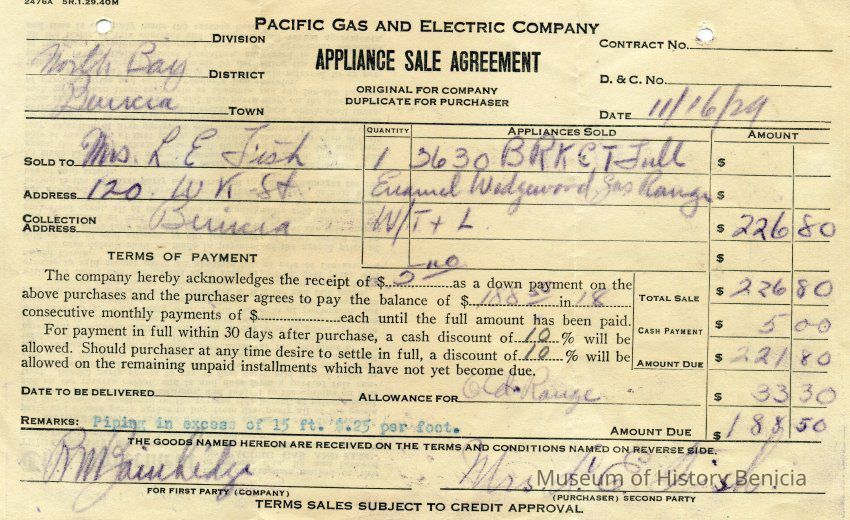 2476A 5R.1.29.40M
PACIFIC GAS AND ELECTRIC COMPANY
DIVISION
CONTRACT NO.
APPLIANCE SALE AGREEMENT
North Bay DISTRICT
D. & C. NO.
ORIGINAL FOR COMPANY
DUPLICATE FOR PURCHASER
Benicia TOWN
DATE 11/16/29
QUANTITY APPLIANCES SOLD AMOUNT
SOLD TO Mrs. L E Fish 1 3630 BRKET Full $
ADDRESS 120 W K St Enamel Wedgewood Gas Range $
COLLECTION
ADDRESS Benicia W/T + L $ 226 80
$
TERMS OF PAYMENT
The company hereby acknowledges the receipt of $ 5 00 as a down payment on the
above purchases and the purchaser agrees to pay the balance of $ 188 50 in 18
TOTAL SALE $ 226 80
consecutive monthly payments of $ each until the full amount has been paid.
For payment in full within 30 days after purchase, a cash discount of 10 % will be
CASH PAYMENT $ 5 00
allowed. Should purchaser at any time desire to settle in full, a discount of 10 % will be
allowed on the remaining unpaid installments which have not yet become due.
AMOUNT DUE $ 221 80
DATE TO BE DELIVERED ALLOWANCE FOR Old Range $ 33 30
REMARKS: Piping in excess of 15 ft. $.25 per foot. AMOUNT DUE $ 188 50
THE GOODS NAMED HEREON ARE RECEIVED ON THE TERMS AND CONDITIONS NAMED ON REVERSE SIDE.
Mrs. L. E. Fish.
Museum of History Benicia
FOR FIRST PARTY (COMPANY) (PURCHASER) SECOND PARTY
TERMS SALES SUBJECT TO CREDIT APPROVAL